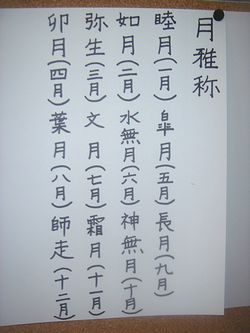 月雅称
睦月(一月) 皐月(五月) 長月(九月)
如月(二月) 水無月(六月) 神無月(十月)
弥生(三月) 文月(七月) 霜月(十一月)
卯月(四月) 葉月(八月) 師走(十二月)